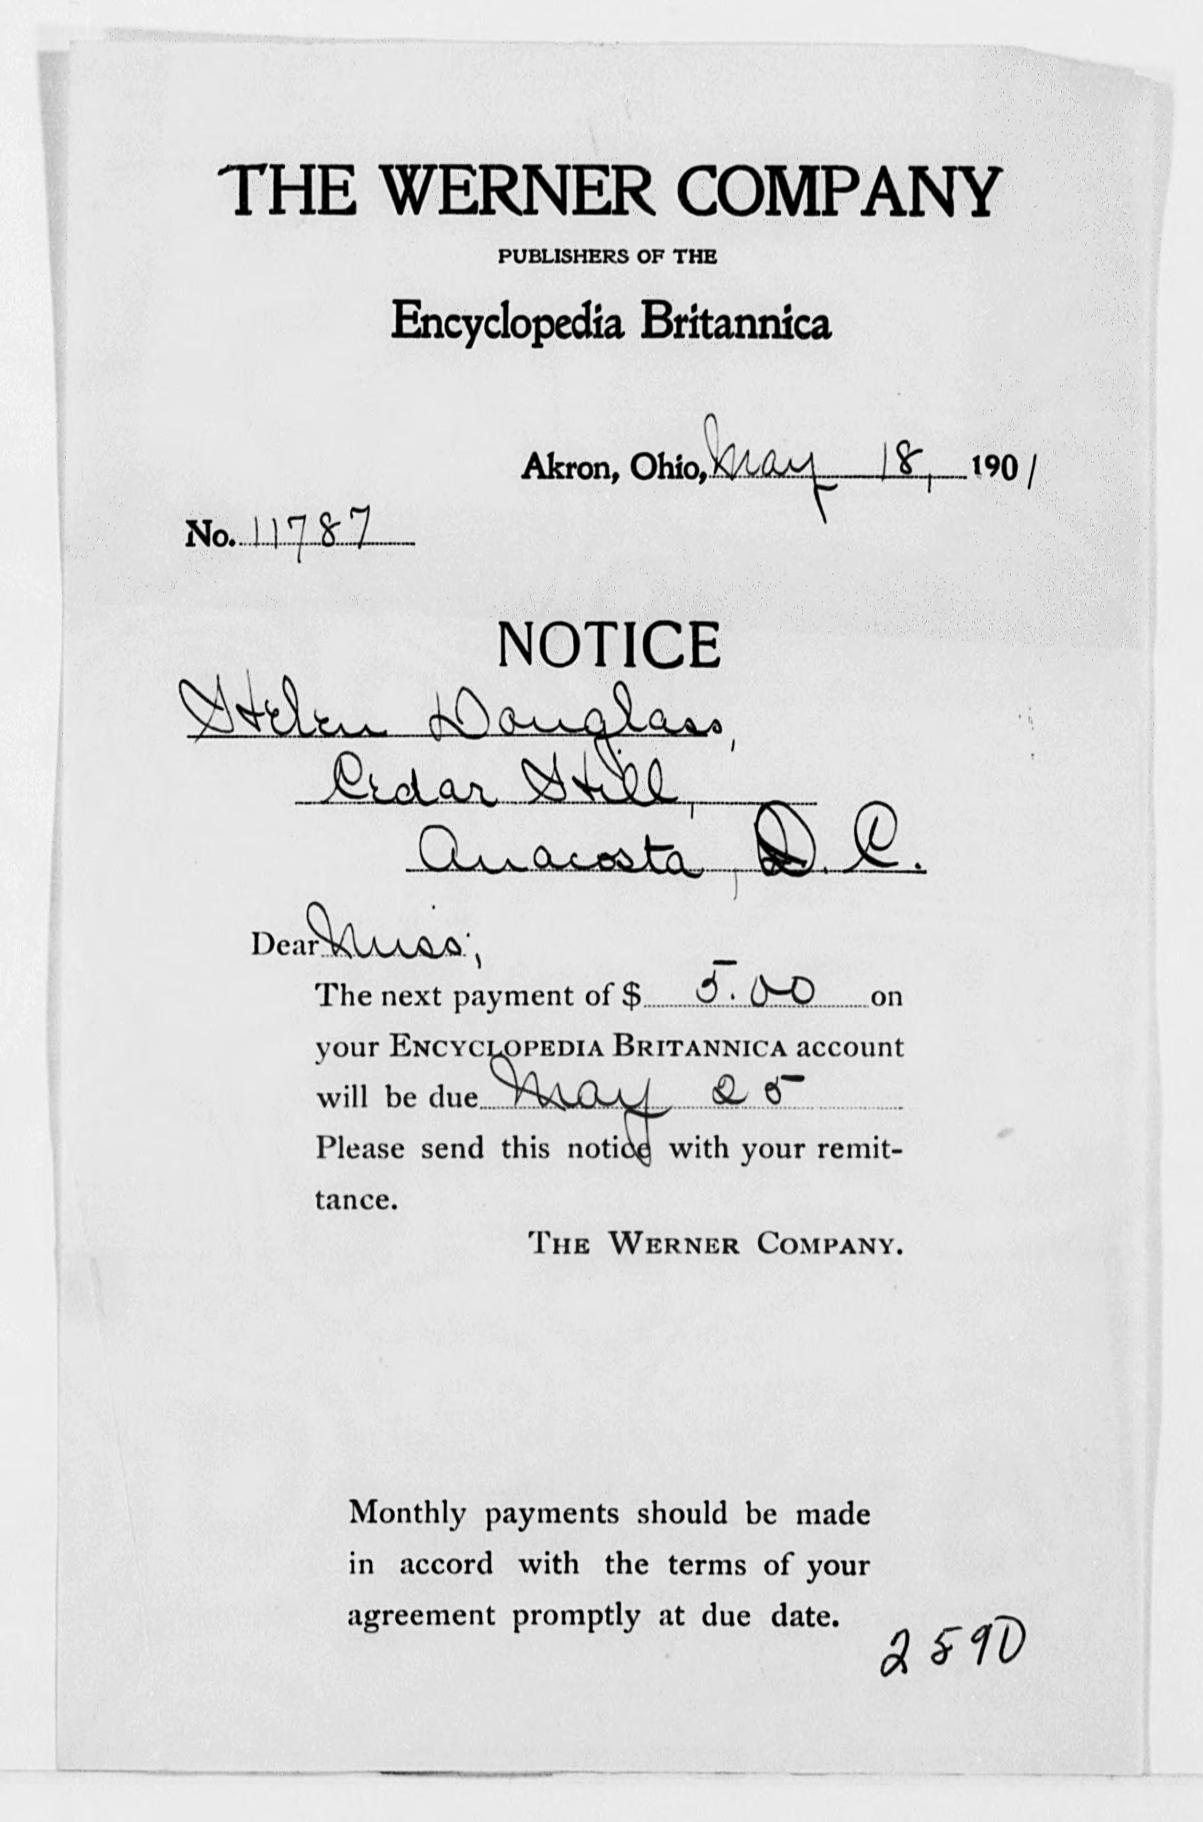 THE WERNER COMPANY
PUBLISHERS OF THE
Encyclopedia Britannica
Akron, Ohio, May 18, 1901
No. 11787
NOTICE
Helen Douglass,
Cedar Hill,
Anacosta, D. C.
Dear Miss;
The next payment of $ 5.00 on
your ENCYCLOPEDIA BRITANNICA account
will be due May 25
Please send this notice with your remit-
tance.
THE WERNER COMPANY.
Monthly payments should be made
in accord with the terms of your
agreement promptly at due date.